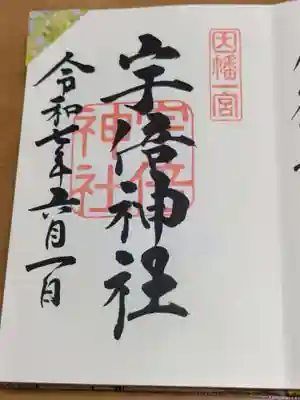 因幡一宮
宇倍神社
宇倍
神社
令和七年六月一日